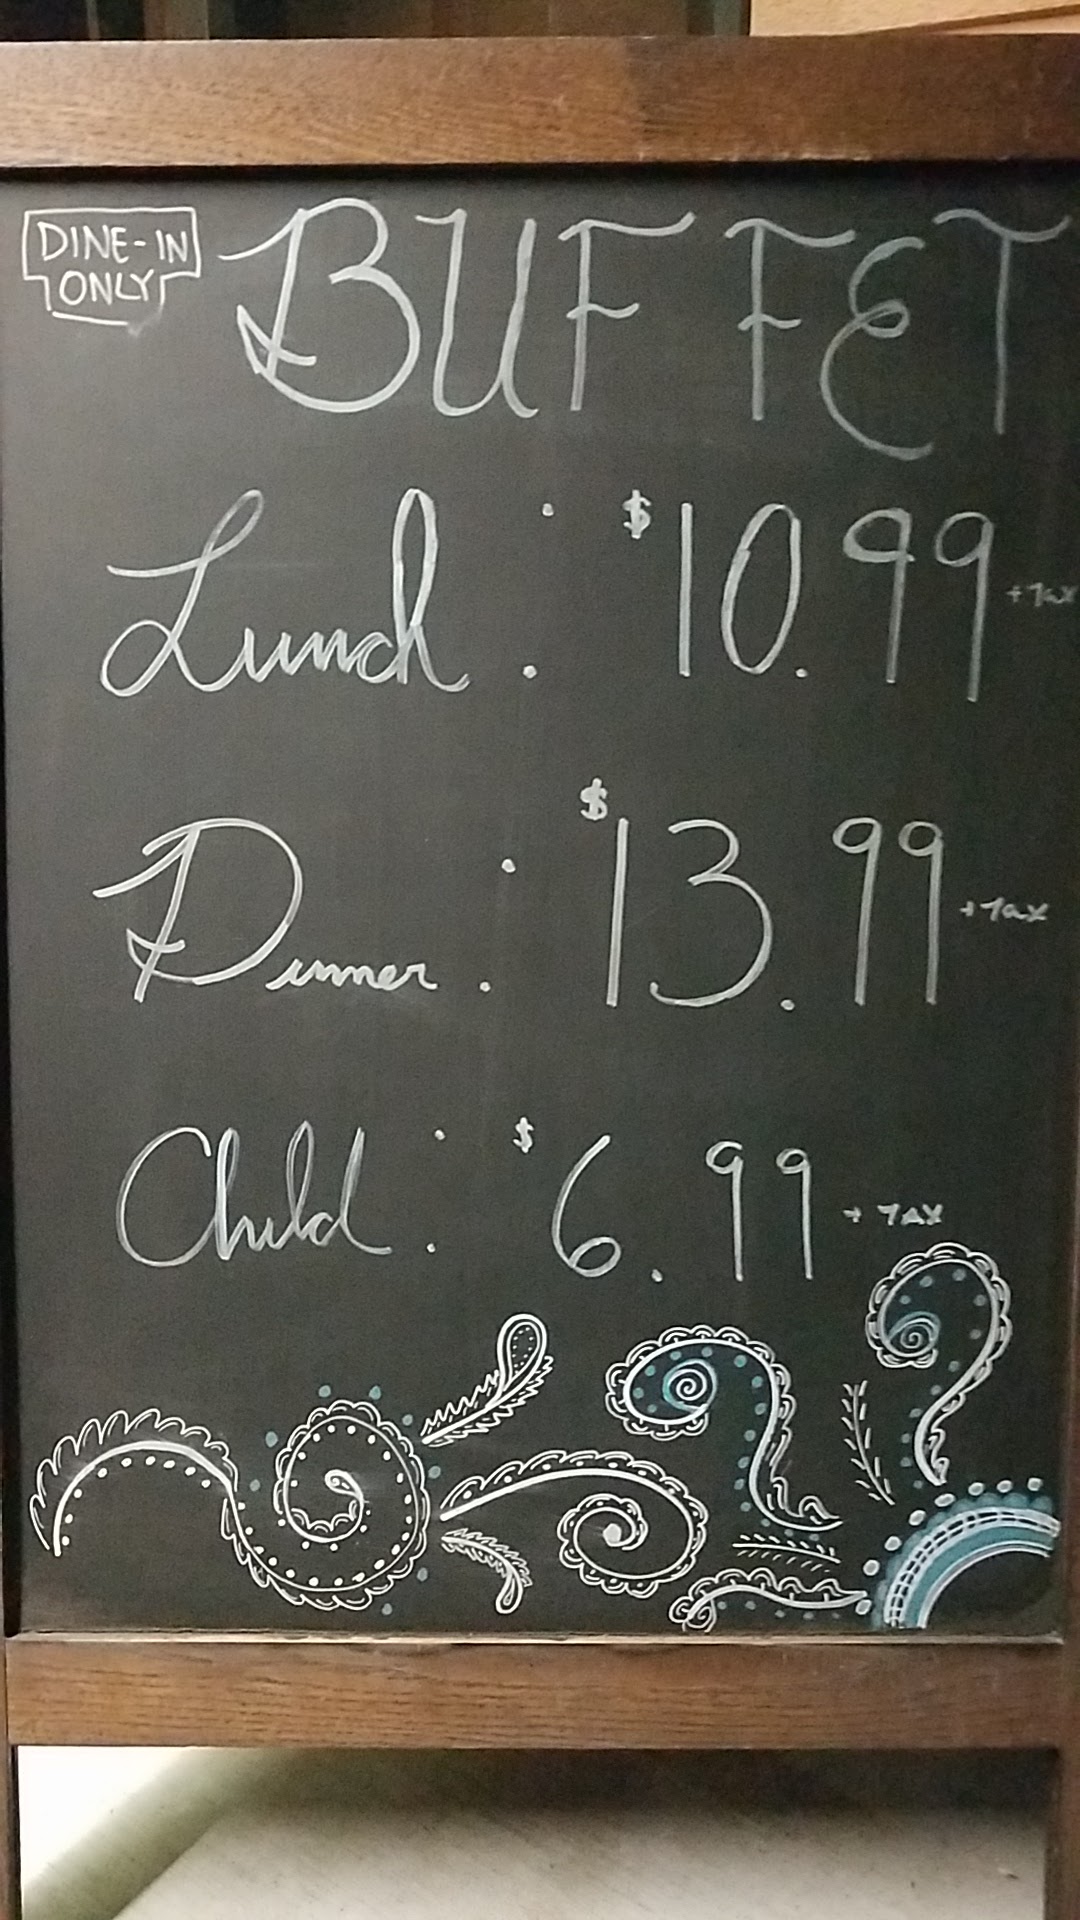 DINE-IN
ONLY
BUFFET
Lunch : $10.99 +Tax
Dinner : $13.99 +Tax
Child : $6.99 + TAX